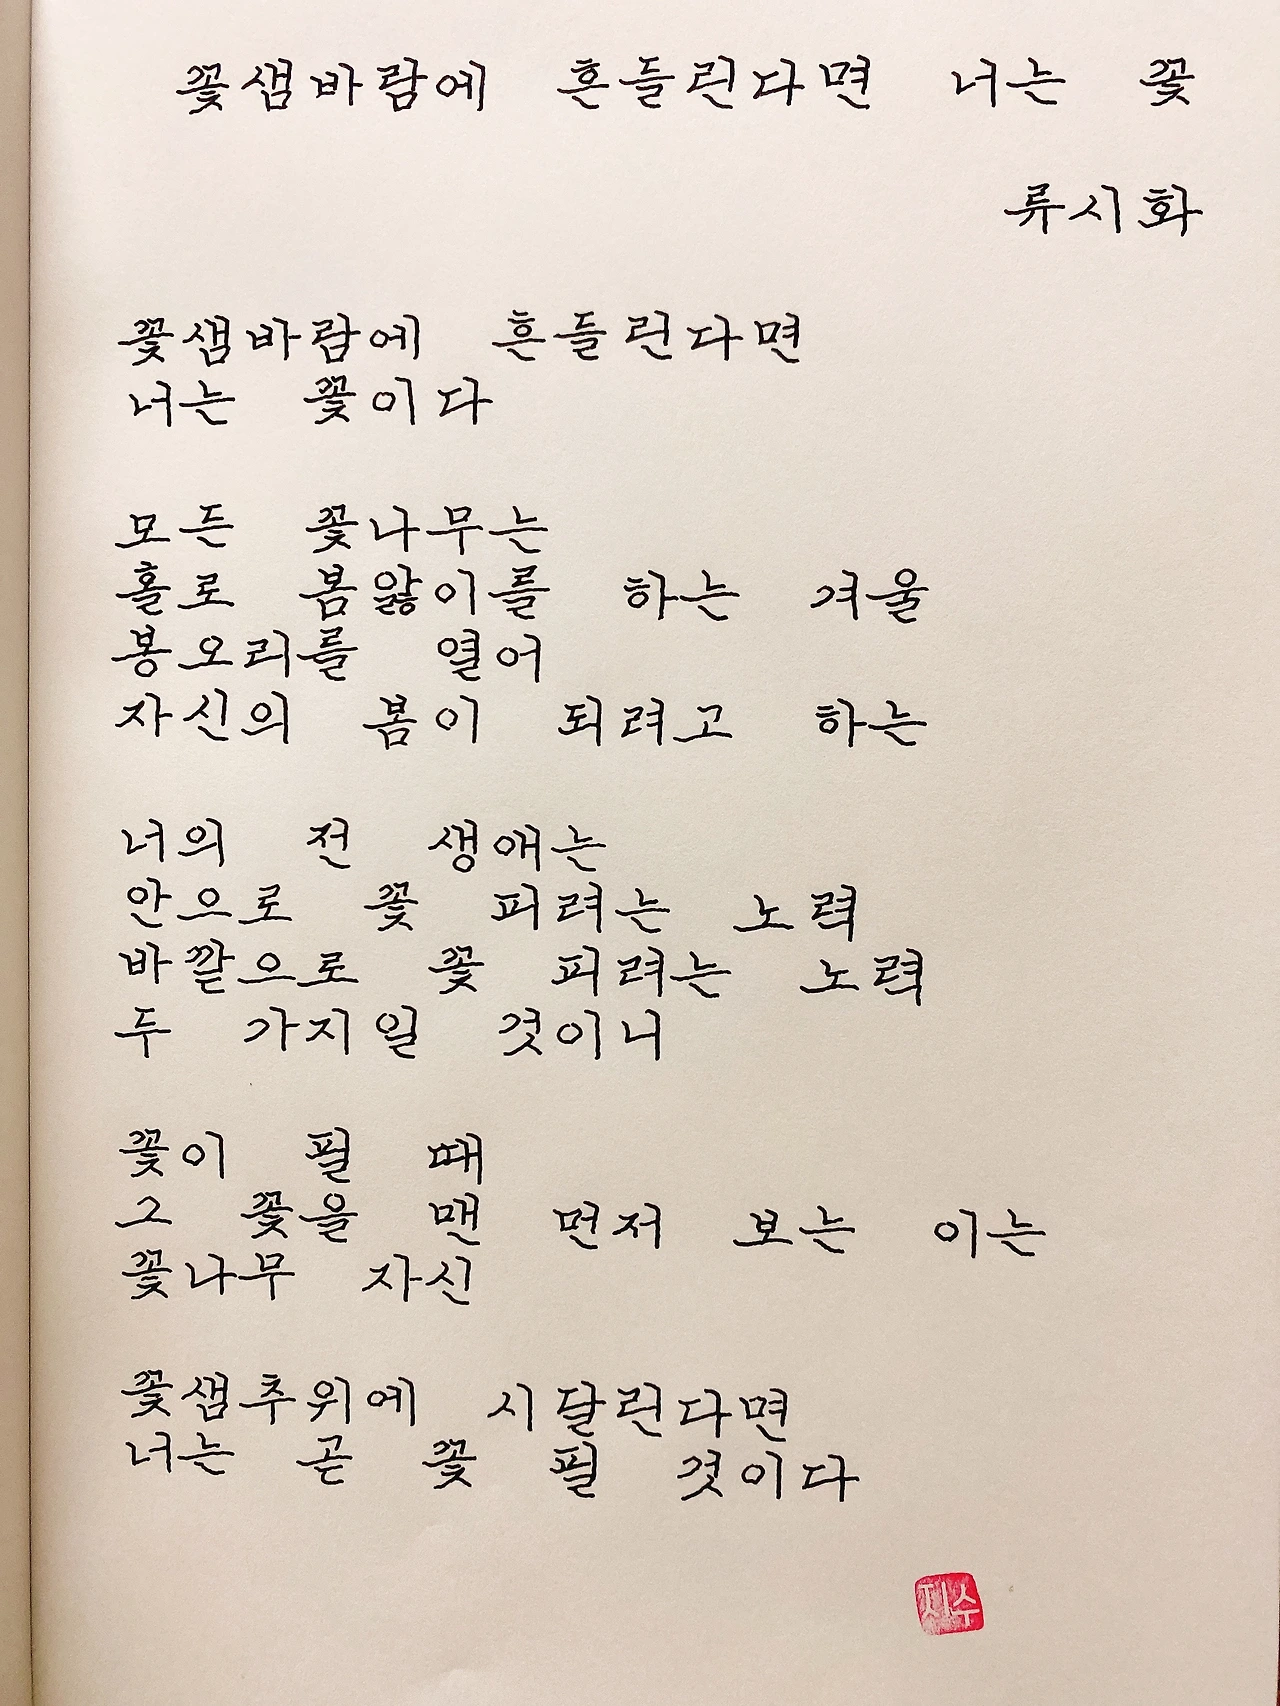 꽃샘바람에 흔들린다면 너는 꽃
류시화
꽃샘바람에 흔들린다면
너는 꽃이다
모든 꽃나무는
홀로 봄앓이를 하는 겨울
봉오리를 열어
자신의 봄이 되려고 하는
너의 전 생애는
안으로 꽃 피려는 노력
바깥으로 꽃 피려는 노력
두 가지일 것이니
꽃이 필 때
그 꽃을 맨 먼저 보는 이는
꽃나무 자신
꽃샘추위에 시달린다면
너는 곧 꽃 필 것이다